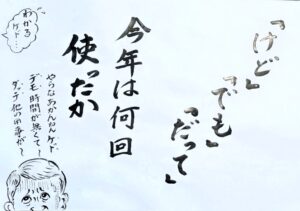 「けど」
「でも」
「だって」
今年は何回
使ったか
わかる
ケド…
やらなあかんねんケド
デモ時間が無くて〜
ダッテ他の用事が〜